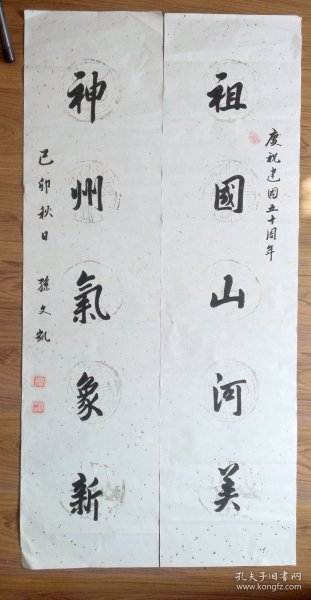 慶祝建國五十周年
祖國山河美
神州氣象新
己卯秋日 孫文凱
孔夫子旧书网
www.kongfz.com